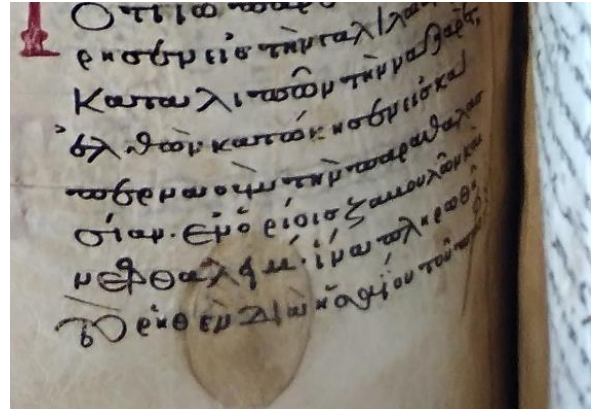 ρησεν εἰς τὴν γαλιλαί
καταλιπὼν τὴν ναζαρέτ,
ἐλθὼν κατώκησεν εἰς κα
περναοὺμ τὴν παραθαλασ
σίαν. ἐν ὁρίοις ζαβουλὼν καὶ
νεφθαλείμ. ἵνα πληρωθῆ
τὸ ρηθὲν διὰ ἡσαΐου τοῦ